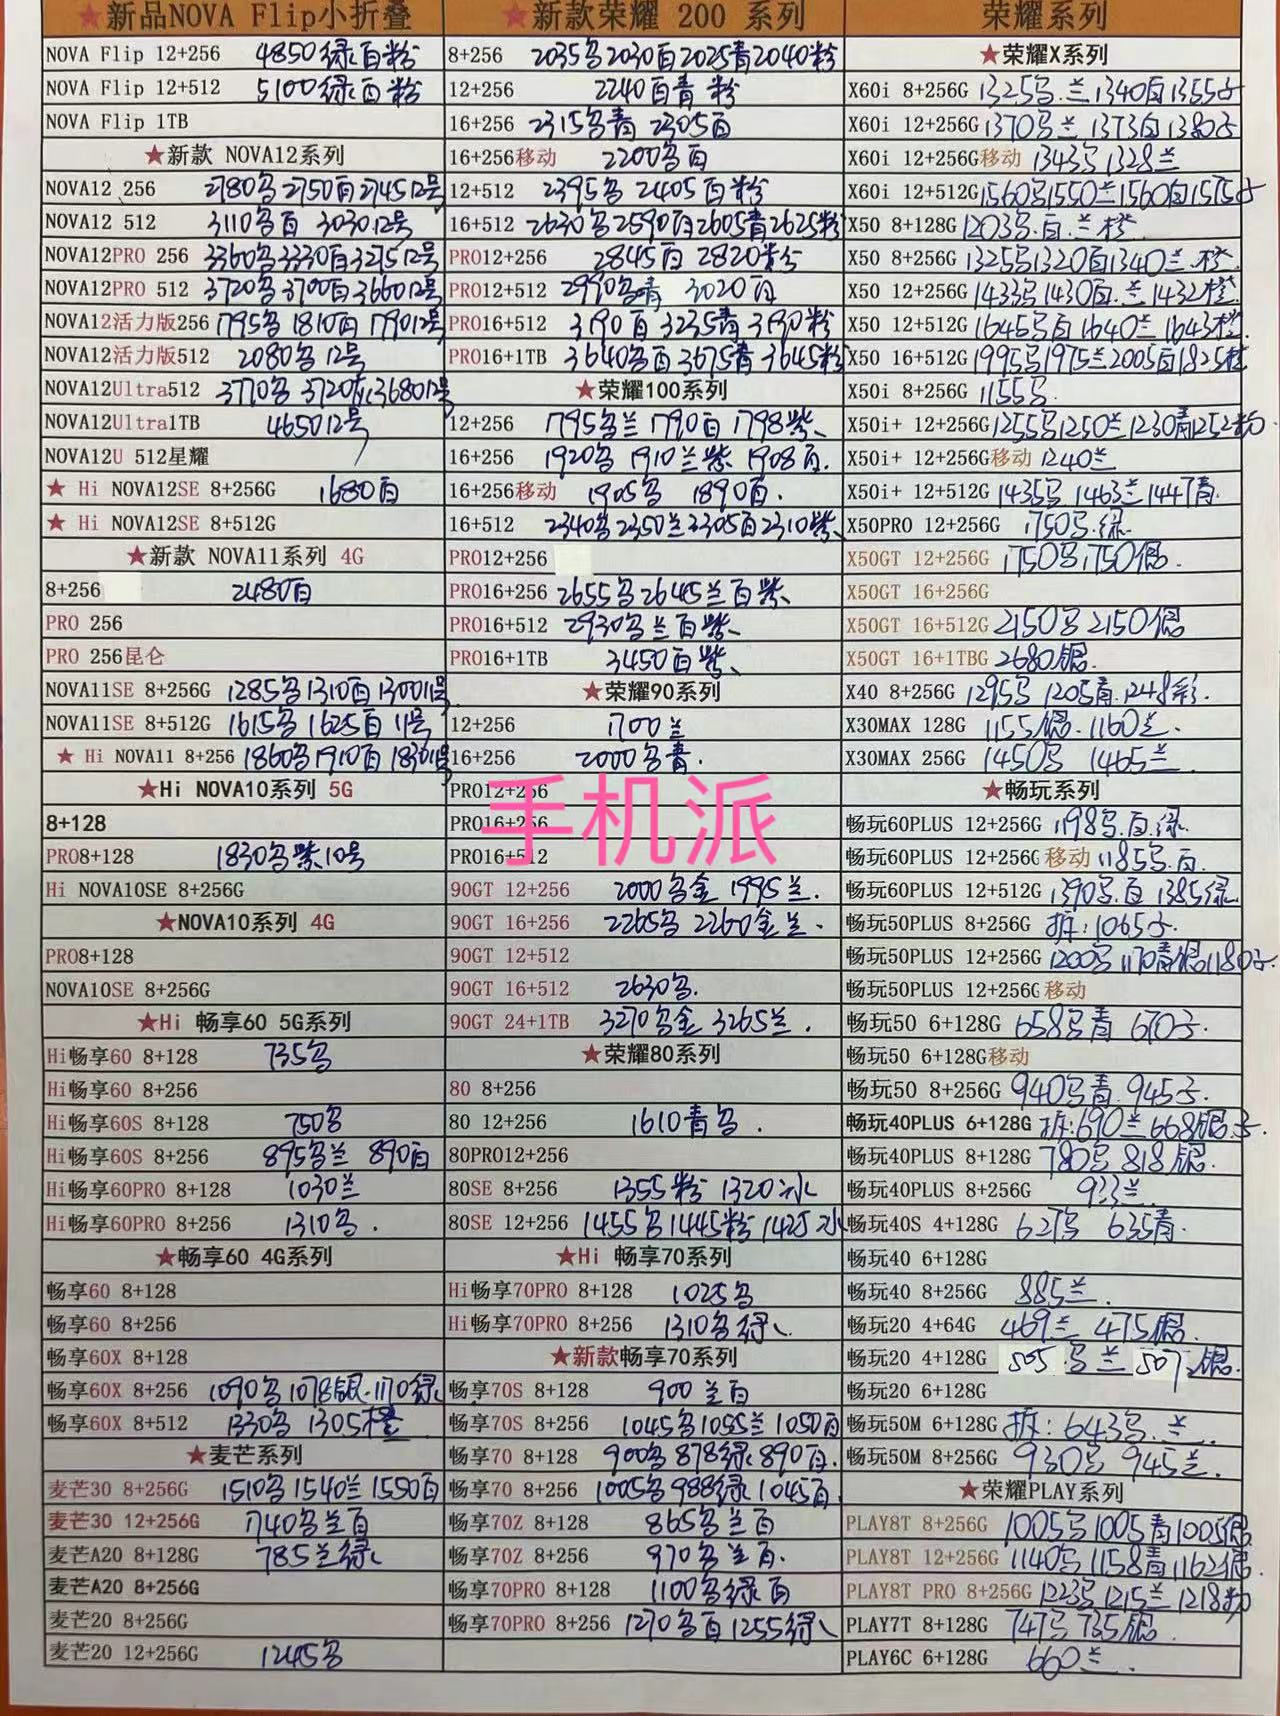 ★新品NOVA Flip小折叠
NOVA Flip 12+256 4850绿百粉
NOVA Flip 12+512 5100绿百粉
NOVA Flip 1TB
★新款 NOVA12系列
NOVA12 256 2780名2750百2745 12号
NOVA12 512 3110名百 3030 12号
NOVA12PRO 256 3360名3330百3275 12号
NOVA12PRO 512 3720名3700百3660 12号
NOVA12活力版256 1795名1810百1790 12号
NOVA12活力版512 2080名12号
NOVA12Ultra512 3770名 3720 3680 12号
NOVA12Ultra1TB 4650 12号
NOVA12U 512星耀
★ Hi NOVA12SE 8+256G 1680百
★ Hi NOVA12SE 8+512G
★新款 NOVA11系列 4G
8+256 2480百
PRO 256
PRO 256昆仑
NOVA11SE 8+256G 1285名1310百1300 11号
NOVA11SE 8+512G 1615名1625百11号
★ Hi NOVA11 8+256 1860名1910百1830 11号
★Hi NOVA10系列 5G
8+128
PRO8+128 1830名紫10号
Hi NOVA10SE 8+256G
★NOVA10系列 4G
PRO8+128
NOVA10SE 8+256G
★Hi 畅享60 5G系列
Hi畅享60 8+128 735名
Hi畅享60 8+256
Hi畅享60S 8+128 750名
Hi畅享60S 8+256 895名兰 890百
Hi畅享60PRO 8+128 1030兰
Hi畅享60PRO 8+256 1310名.
★畅享60 4G系列
畅享60 8+128
畅享60 8+256
畅享60X 8+128
畅享60X 8+256 1090名1078银.1170绿
畅享60X 8+512 1330名 1305橙
★麦芒系列
麦芒30 8+256G 1510名1540兰1550百
麦芒30 12+256G 1740名兰百
麦芒A20 8+128G 785兰绿
麦芒A20 8+256G
麦芒20 8+256G
麦芒20 12+256G 1245名
★新款荣耀 200 系列
8+256 2035名2030百2025青2040粉
12+256 2240百青 粉
16+256 2315名青 2305百
16+256移动 2200名百
12+512 2395名 2405百粉
16+512 2630名2590百2605青2625粉
PRO12+256 2845百 2820粉
PRO12+512 2990名青 3020百
PRO16+512 3190百 3235青3190粉
PRO16+1TB 3640名百3675青3645粉
★荣耀100系列
12+256 1795名兰 1790百 1798紫
16+256 1920名 1910兰紫 1908百.
16+256移动 1905名 1890百.
16+512 2340名2350兰2305百2310紫
PRO12+256
PRO16+256 2655名2645兰百紫
PRO16+512 2930名兰百紫
PRO16+1TB 3450百紫
★荣耀90系列
12+256 1700兰
16+256 2000名青.
PRO12+256
PRO16+256
PRO16+512
90GT 12+256 2000名金 1995兰.
90GT 16+256 2265名 2260金兰.
90GT 12+512
90GT 16+512 2630名.
90GT 24+1TB 3270名金 3265兰.
★荣耀80系列
80 8+256
80 12+256 1610青名.
80PRO12+256
80SE 8+256 1355粉 1320冰
80SE 12+256 1455名1445粉1425冰
★Hi 畅享70系列
Hi畅享70PRO 8+128 1025名
Hi畅享70PRO 8+256 1310名绿
★新款畅享70系列
畅享70S 8+128 900兰百
畅享70S 8+256 1045名1055兰1050百
畅享70 8+128 900名878绿890百.
畅享70 8+256 1005名988绿1045百
畅享70Z 8+128 865名兰百
畅享70Z 8+256 970名兰百.
畅享70PRO 8+128 1100名绿百
畅享70PRO 8+256 1270名百1255绿
荣耀系列
★荣耀X系列
X60i 8+256G 1325名.兰1340百1355子
X60i 12+256G 1370名兰 1373百1380子
X60i 12+256G移动 1343名1328兰
X60i 12+512G 1560名1550兰1560百1575子
X50 8+128G 1203名.百.兰橙
X50 8+256G 1325名1320百1340兰.橙.
X50 12+256G 1433名1430百.兰1432橙
X50 12+512G 1645名百1640兰1643橙
X50 16+512G 1995名1975兰2005百1825橙
X50i 8+256G 1155名.
X50i+ 12+256G 1255名1250兰1230青1252粉.
X50i+ 12+256G移动 1240兰
X50i+ 12+512G 1435名1463兰1447青.
X50PRO 12+256G 1750名.绿.
X50GT 12+256G 1750名1750银.
X50GT 16+256G
X50GT 16+512G 2150名2150银
X50GT 16+1TBG 2680银.
X40 8+256G 1295名 1205青.1248彩.
X30MAX 128G 1155银.1160兰.
X30MAX 256G 1450名 1465兰
★畅玩系列
畅玩60PLUS 12+256G 1198名.百.绿
畅玩60PLUS 12+256G 移动 1185名.百
畅玩60PLUS 12+512G 1390名.百1385绿
畅玩50PLUS 8+256G 拆:1065子.
畅玩50PLUS 12+256G 1200名1170青银1180子.
畅玩50PLUS 12+256G 移动
畅玩50 6+128G 658名青 670子.
畅玩50 6+128G移动
畅玩50 8+256G 940名青.945子.
畅玩40PLUS 6+128G 拆:690兰668银.子.
畅玩40PLUS 8+128G 780名 818银.
畅玩40PLUS 8+256G 933兰
畅玩40S 4+128G 627名 635青.
畅玩40 6+128G
畅玩40 8+256G 885兰.
畅玩20 4+64G 469兰 475银.
畅玩20 4+128G 505.名兰 507银.
畅玩20 6+128G
畅玩50M 6+128G 拆:643名.兰.
畅玩50M 8+256G 930名 945兰.
★荣耀PLAY系列
PLAY8T 8+256G 1005名1005青1005银
PLAY8T 12+256G 1140名1158青1162银.
PLAY8T PRO 8+256G 1223名1215兰1218粉
PLAY7T 8+128G 747名735银.
PLAY6C 6+128G 660兰.
手机派